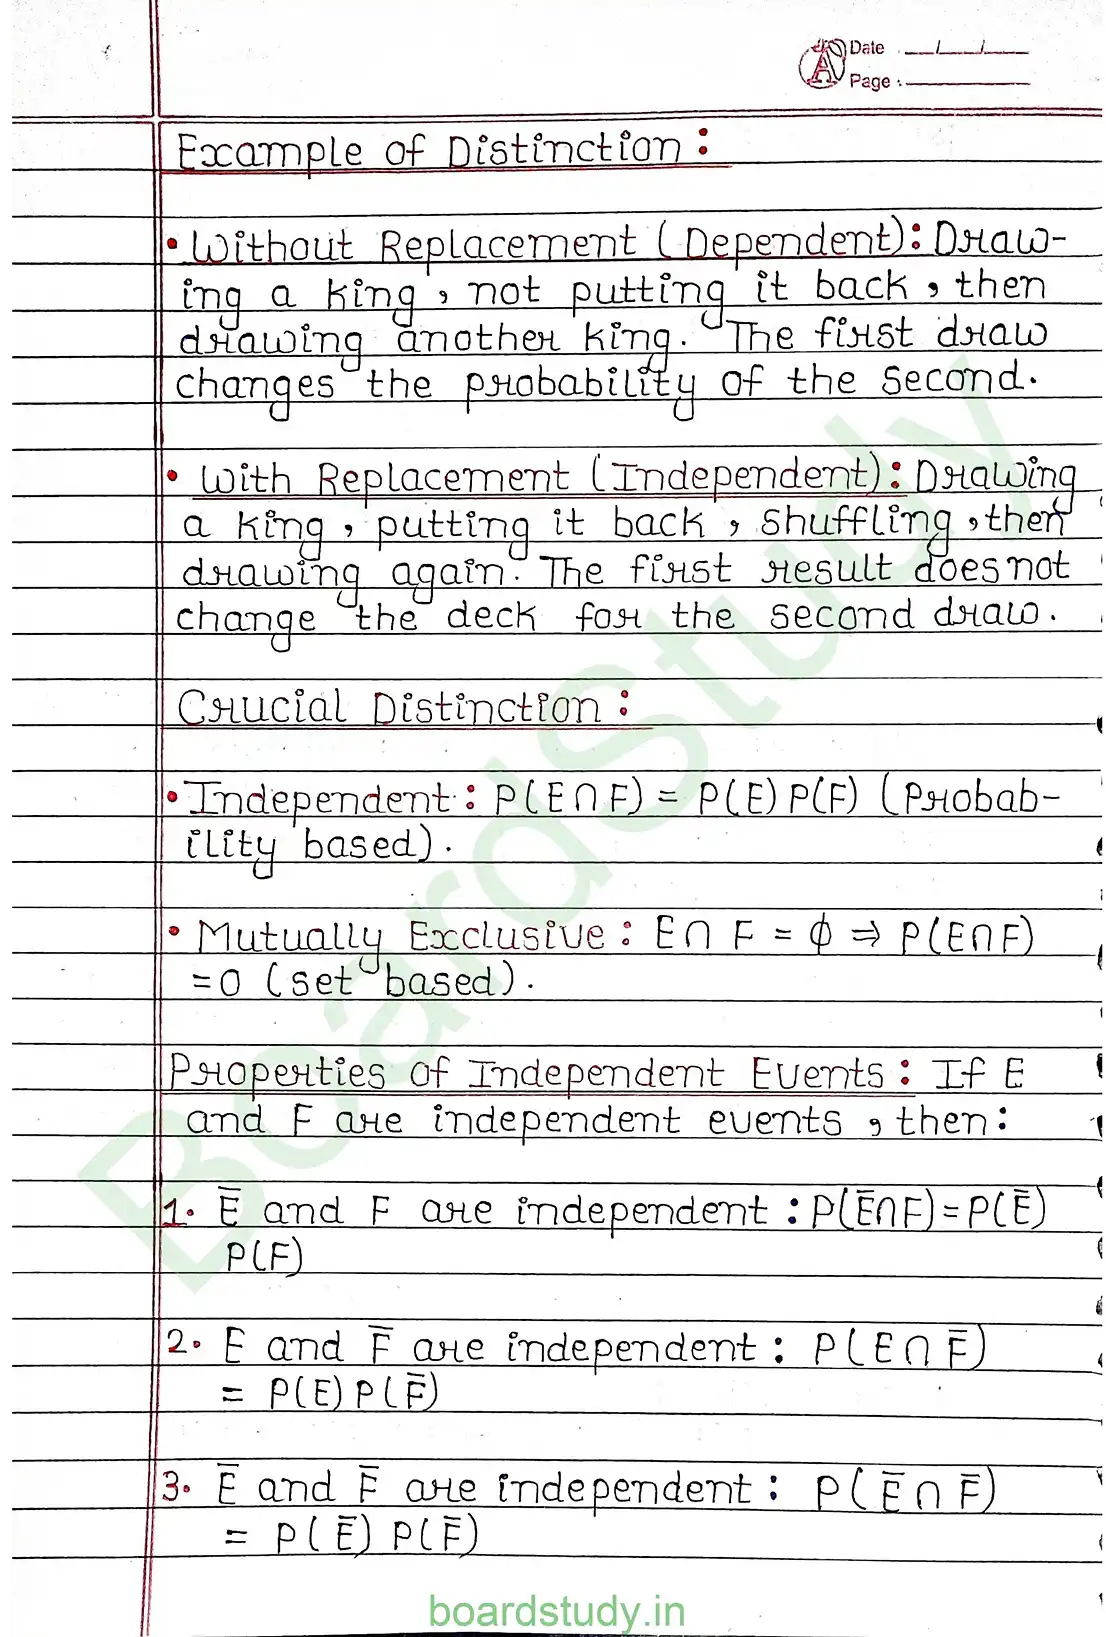 Date . __/__/__
Page : ______
Example of Distinction :
• Without Replacement (Dependent): Draw-
ing a king, not putting it back, then
drawing another king. The first draw
changes the probability of the second.
• With Replacement (Independent): Drawing
a king, putting it back, shuffling, then
drawing again. The first result does not
change the deck for the second draw.
Crucial Distinction :
• Independent : P(E∩F) = P(E) P(F) (Probab-
ility based).
• Mutually Exclusive : E∩F = ϕ ⇒ P(E∩F)
=0 (set based).
Properties of Independent Events : If E
and F are independent events, then :
1. E̅ and F are independent : P(E̅∩F)=P(E̅)
P(F)
2. E and F̅ are independent : P(E∩F̅)
= P(E) P(F̅)
3. E̅ and F̅ are independent : P(E̅∩F̅)
= P(E̅) P(F̅)
BoardStudy
boardstudy.in